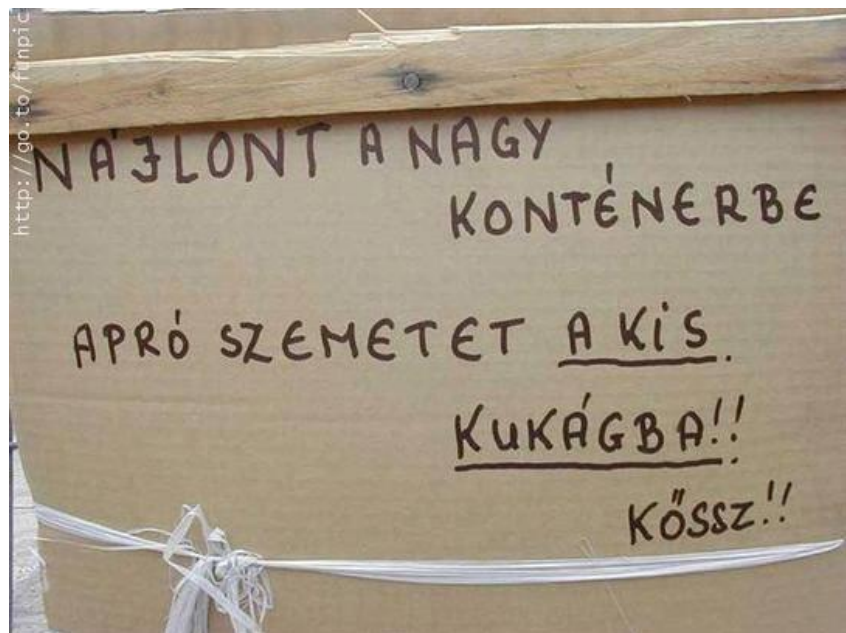 http://go.to/funpic
NÁJLONT A NAGY
KONTÉNERBE
APRÓ SZEMETET A KiS.
KUKÁGBA!!
KŐSSZ!!